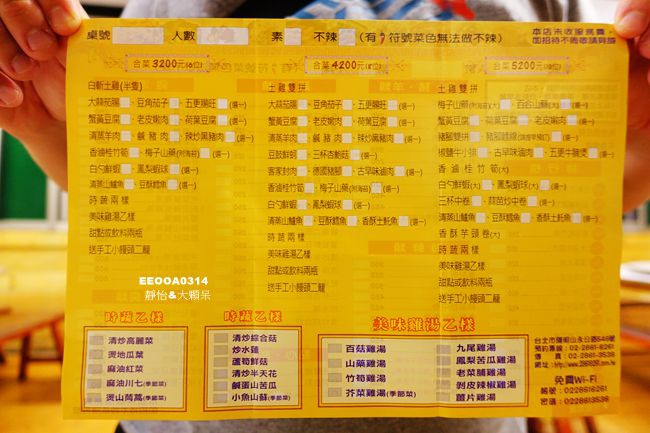 桌號 人數 素 不辣 (有 符號菜色無法做不辣)
本店未收服務費,
如招待不周敬請見諒
合菜3200元(6位)
白斬土雞(半隻)
大蒜茄腸、豆角茄子、五更腸旺 (選一)
蟹黃豆腐、老皮嫩肉、荷葉豆腐 (選一)
清蒸羊肉、鹹豬肉、辣炒黑豬肉 (選一)
香滷桂竹筍、梅子山藥(附海苔) (選一)
白勺鮮蝦、鳳梨蝦球 (選一)
清蒸山鱸魚、豆酥鱈魚 (選一)
時蔬兩樣
美味雞湯乙樣
甜點或飲料兩瓶
送手工小饅頭二籠
合菜4200元(8位)
土雞雙拼
大蒜茄腸、豆角茄子、五更腸旺 (選一)
蟹黃豆腐、老皮嫩肉、荷葉豆腐 (選一)
清蒸羊肉、鹹豬肉、辣炒黑豬肉 (選一)
豆豉鮮蚵、三杯杏鮑菇 (選一)
客家封肉、德國豬腳、古早味滷肉 (選一)
香滷桂竹筍、梅子山藥(附海苔) (選一)
白勺鮮蝦、鳳梨蝦球 (選一)
清蒸山鱸魚、豆酥鱈魚、香酥土魠魚 (選一)
時蔬兩樣
美味雞湯乙樣
甜點或飲料兩瓶
送手工小饅頭二籠
合菜5200元(10位)
土雞雙拼
梅子山藥(附海苔)(大)、百合山藥(大) (選一)
蟹黃豆腐、荷葉豆腐、老皮嫩肉 (選一)
豬腳雙拼、豬腳麵線 (選一)
椒鹽牛小排、古早味滷肉、五更牛腩煲 (選一)
香滷桂竹筍(大)
白勺鮮蝦(大)、鳳梨蝦球(大) (選一)
三杯中卷、蒜苗炒中卷 (選一)
清蒸山鱸魚、豆酥鱈魚、香酥土魠魚 (選一)
香酥芋頭卷(大)
時蔬兩樣
美味雞湯乙樣
甜點或飲料兩瓶
送手工小饅頭二籠
EEOOA0314
靜怡&大顆呆
時蔬乙樣
清炒高麗菜
燙地瓜葉
麻油紅菜
麻油川七(季節菜)
燙山茼萵(季節菜)
時蔬乙樣
清炒綜合菇
炒水蓮
蘆筍鮮菇
清炒半天花
鹹蛋山苦瓜
小魚山蘇(季節菜)
美味雞湯乙樣
百菇雞湯
山藥雞湯
竹筍雞湯
芥菜雞湯(季節菜)
九尾雞湯
鳳梨苦瓜雞湯
老菜脯雞湯
剝皮辣椒雞湯
薑片雞湯
台北市陽明山永公路546號
預約專線:02-2861-6261
傳 真:02-2861-3536
免費Wi-Fi
帳號:0228616261
密碼:0228613536